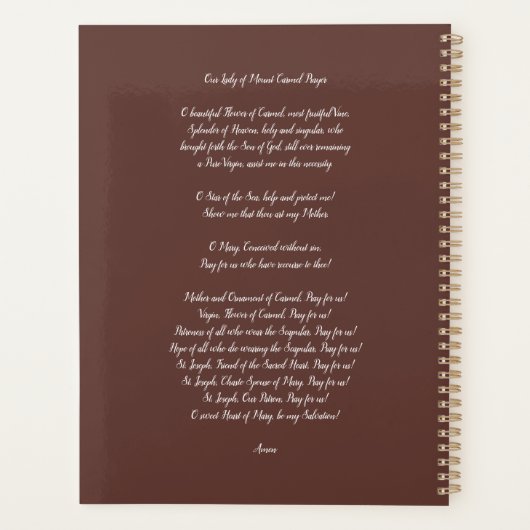 Our Lady of Mount Carmel Prayer
O beautiful Flower of Carmel, most fruitful Vine,
Splendor of Heaven, holy and singular, who
brought forth the Son of God, still ever remaining
a Pure Virgin, assist me in this necessity.
O Star of the Sea, help and protect me!
Show me that thou art my Mother.
O Mary, Conceived without sin,
Pray for us who have recourse to thee!
Mother and Ornament of Carmel, Pray for us!
Virgin, Flower of Carmel, Pray for us!
Patroness of all who wear the Scapular, Pray for us!
Hope of all who die wearing the Scapular, Pray for us!
St. Joseph, Friend of the Sacred Heart, Pray for us!
St. Joseph, Chaste Spouse of Mary, Pray for us!
St. Joseph, Our Patron, Pray for us!
O sweet Heart of Mary, be my Salvation!
Amen